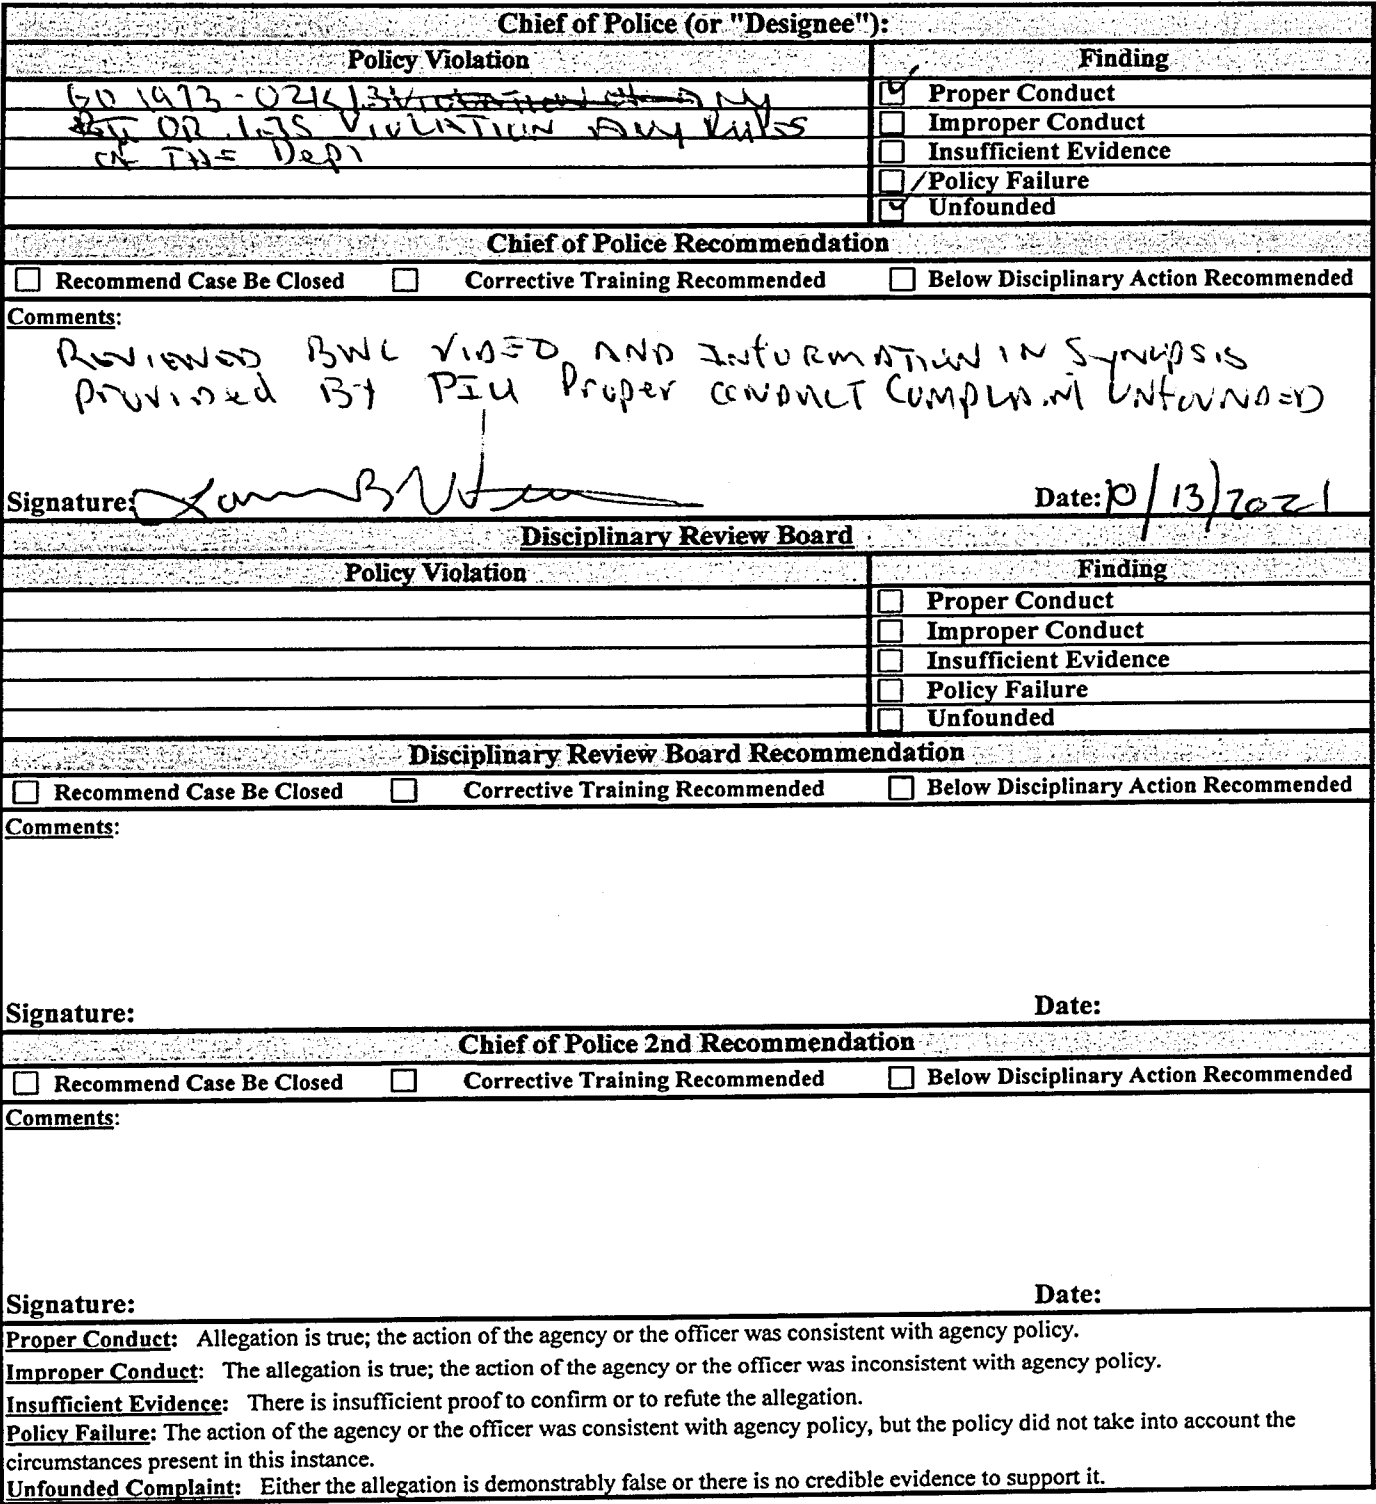 Chief of Police (or "Designee"):
Policy Violation Finding
GO 1973-02 Any ☑ Proper Conduct
OR VIOLATION Any Rules ☐ Improper Conduct
OF THE Dept ☐ Insufficient Evidence
☐ /Policy Failure
☑ Unfounded
Chief of Police Recommendation
☐ Recommend Case Be Closed ☐ Corrective Training Recommended ☐ Below Disciplinary Action Recommended
Comments:
REVIEWED BWC VIDEO, AND INFORMATION IN SYNOPSIS
Provided By PIU Proper CONDUCT COMPLAINT UNFOUNDED
Signature: Date: 10/13/2021
Disciplinary Review Board
Policy Violation Finding
☐ Proper Conduct
☐ Improper Conduct
☐ Insufficient Evidence
☐ Policy Failure
☐ Unfounded
Disciplinary Review Board Recommendation
☐ Recommend Case Be Closed ☐ Corrective Training Recommended ☐ Below Disciplinary Action Recommended
Comments:
Signature: Date:
Chief of Police 2nd Recommendation
☐ Recommend Case Be Closed ☐ Corrective Training Recommended ☐ Below Disciplinary Action Recommended
Comments:
Signature: Date:
Proper Conduct: Allegation is true; the action of the agency or the officer was consistent with agency policy.
Improper Conduct: The allegation is true; the action of the agency or the officer was inconsistent with agency policy.
Insufficient Evidence: There is insufficient proof to confirm or to refute the allegation.
Policy Failure: The action of the agency or the officer was consistent with agency policy, but the policy did not take into account the
circumstances present in this instance.
Unfounded Complaint: Either the allegation is demonstrably false or there is no credible evidence to support it.